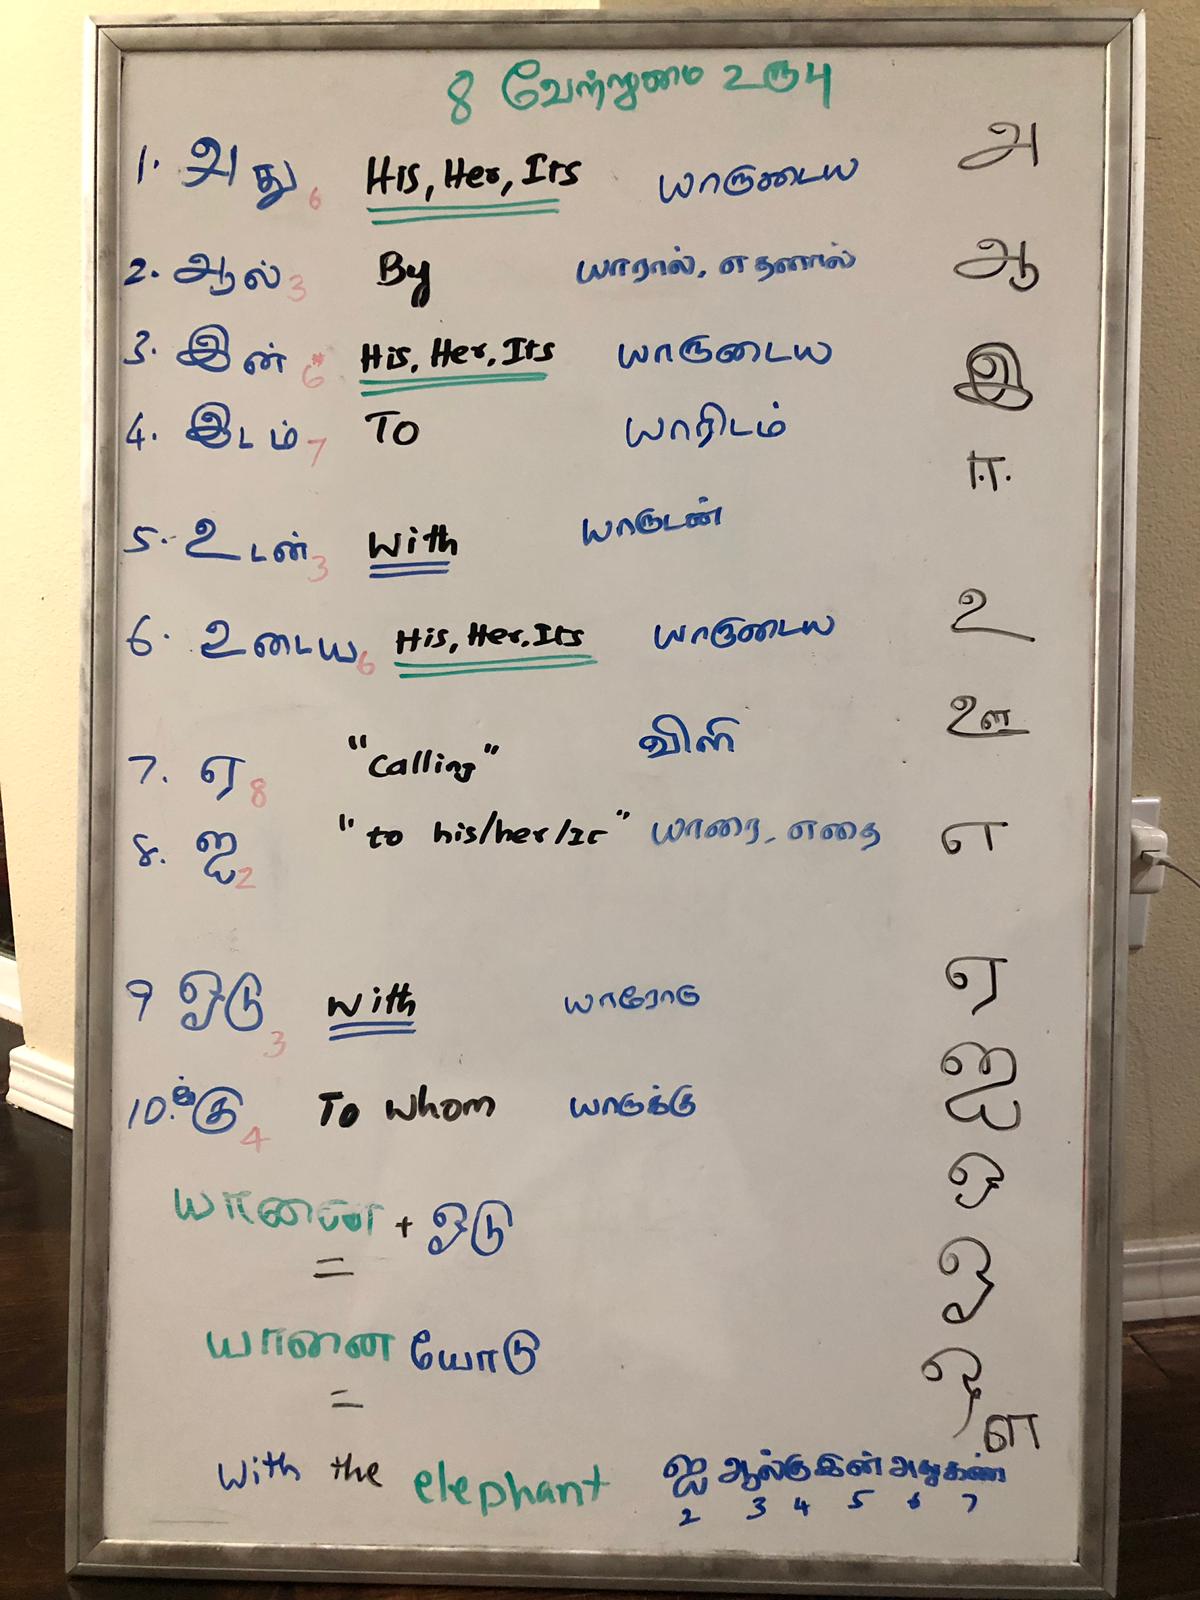 8 வேற்றுமை உருபு
1. அது 6 His, Her, Its யாருடைய
2. ஆல் 3 By யாரால், எதனால்
3. இன் 6 His, Her, Its யாருடைய
4. இடம் 7 To யாரிடம்
5. உடன் 3 With யாருடன்
6. உடைய 6 His, Her, Its யாருடைய
7. ஏ 8 "calling" விளி
8. ஐ 2 "to his/her/It" யாரை, எதை
9 ஓடு 3 With யாரோடு
10. க்கு 4 To whom யாருக்கு
யானை + ஓடு
=
யானை யோடு
=
with the elephant
ஐ ஆல் கு இன் அது கண்
2 3 4 5 6 7
அ
ஆ
இ
ஈ
உ
ஊ
எ
ஏ
ஐ
ஒ
ஓ
ஔ